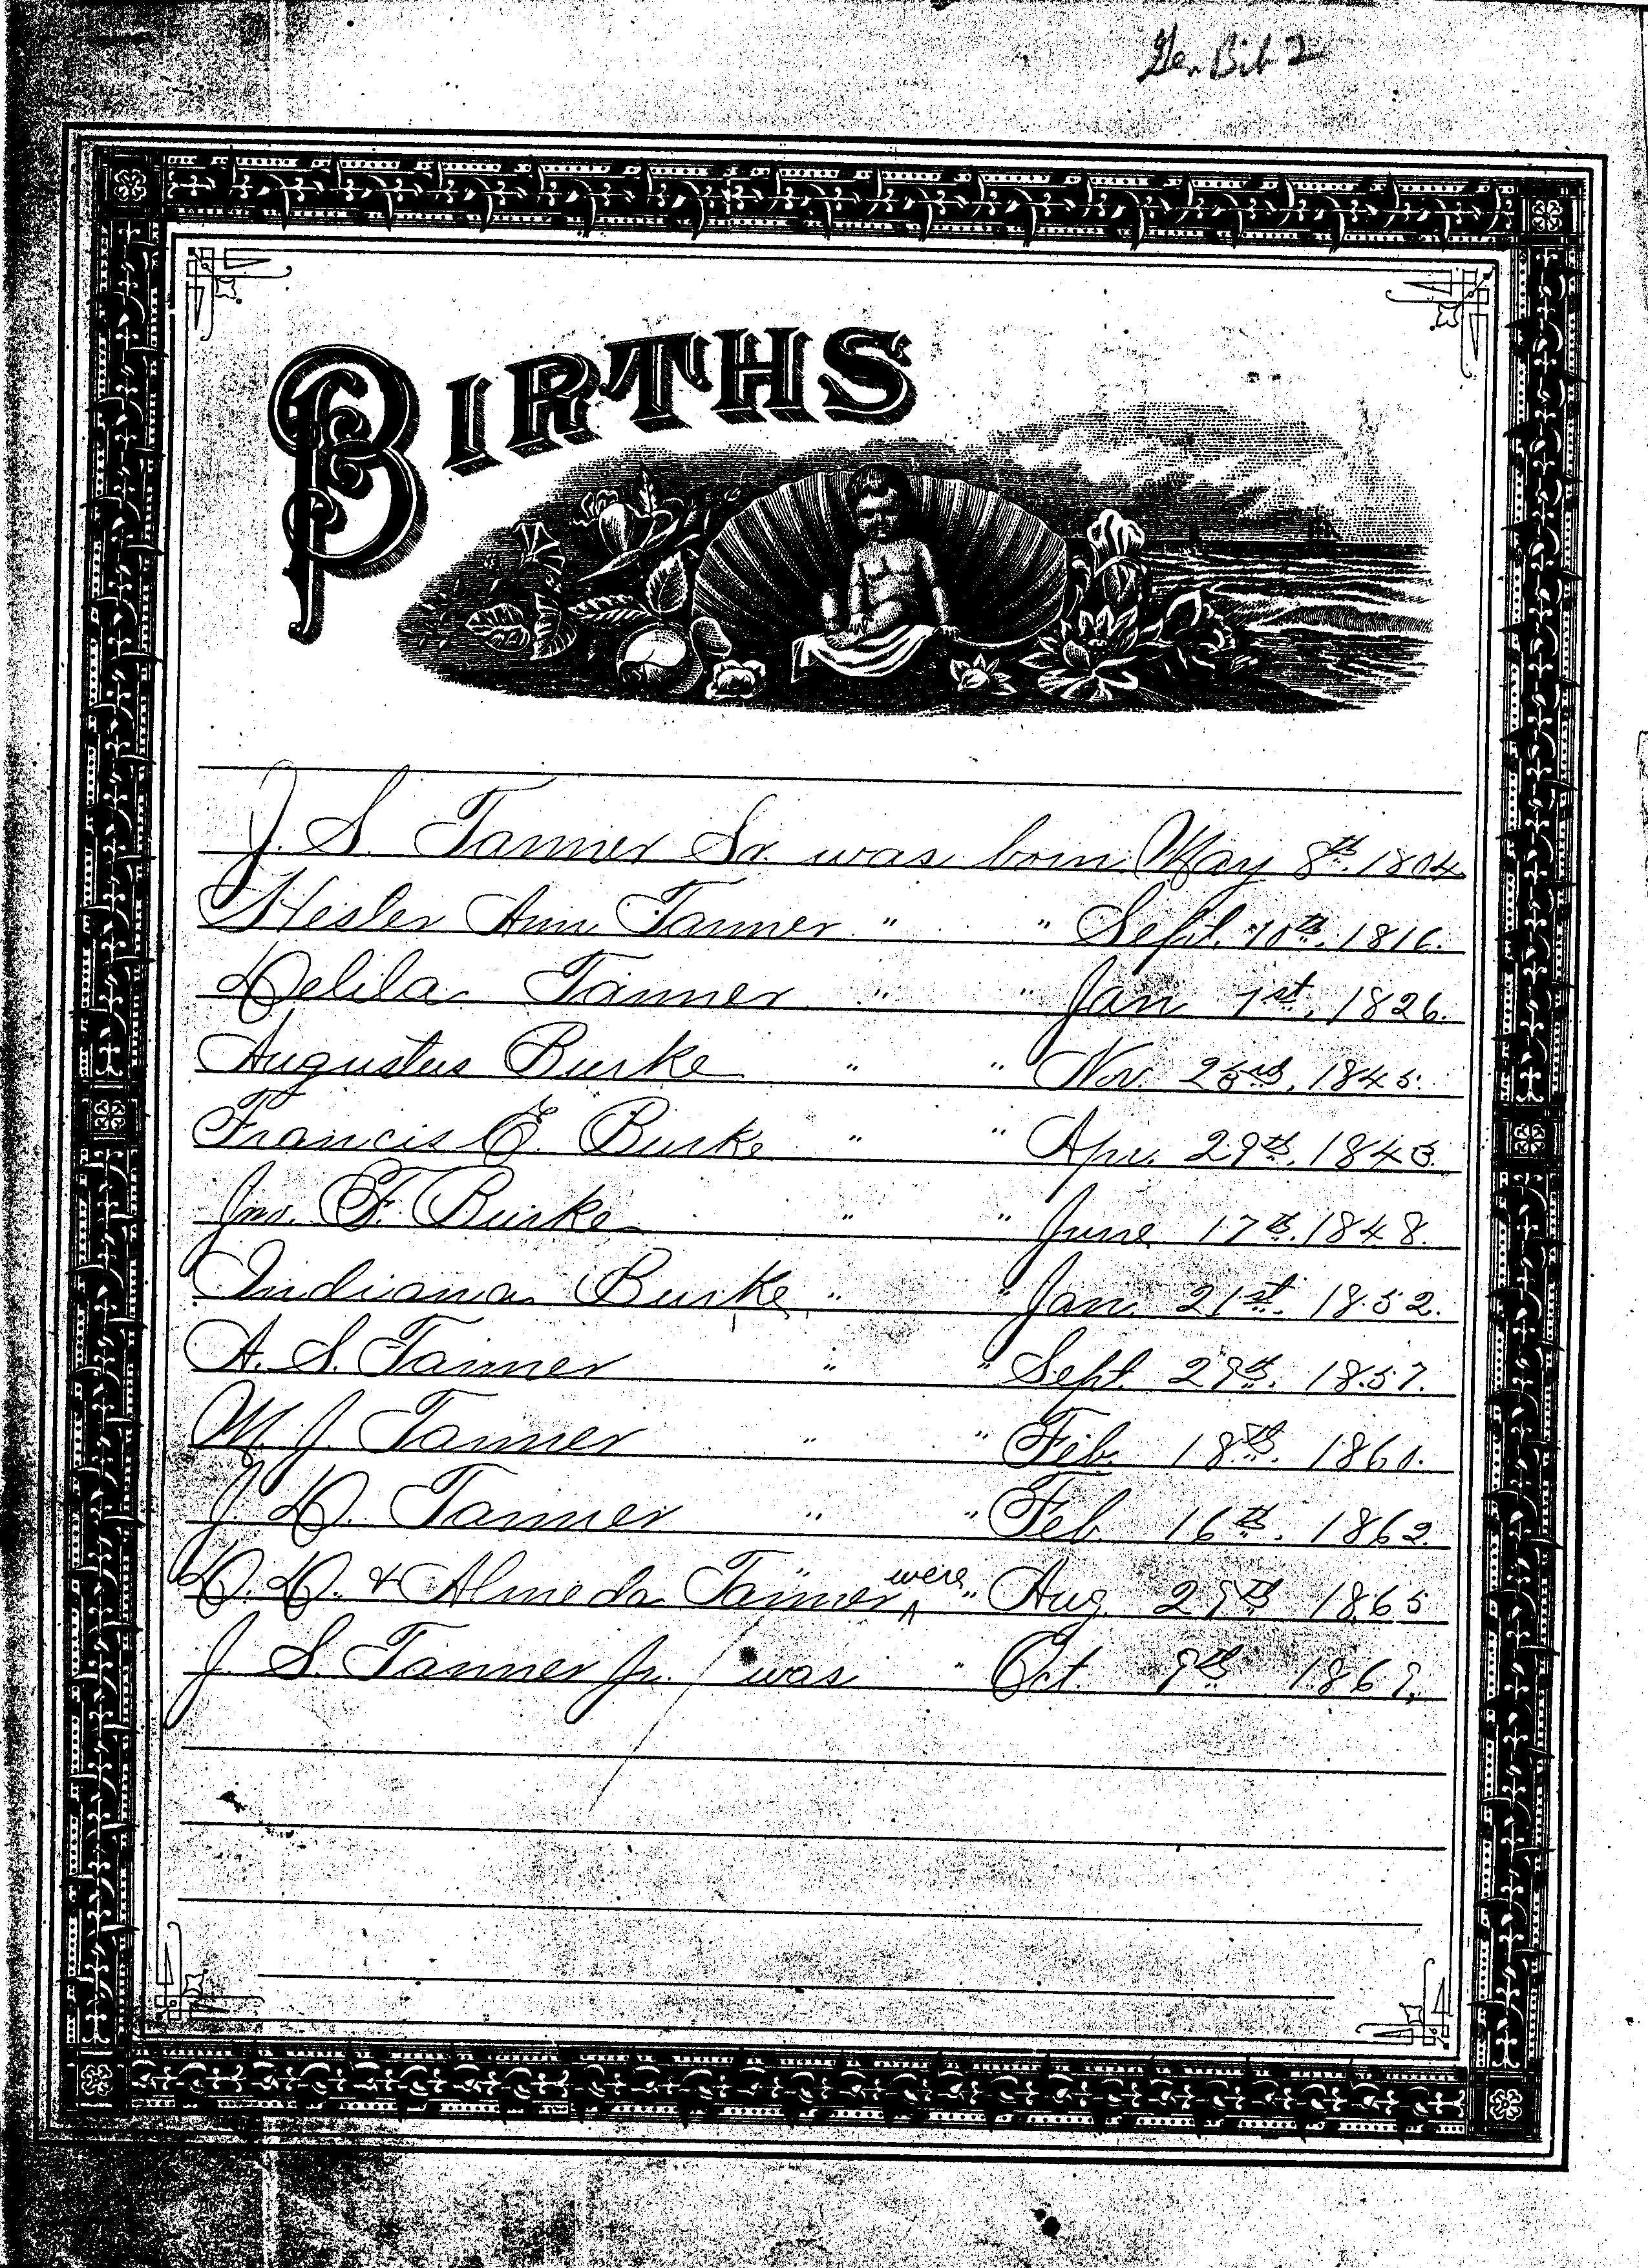 Ge. Bib 2
BIRTHS
J. S. Tanner Sr. was born May 8th. 1804.
Hester Ann Tanner " " Sept. 10th. 1816.
Delila Tanner " " Jan 1st. 1826.
Augustus Burke " " Nov. 1845.
Francis E. Burke " " Apr. 29th. 1843.
Jno. F. Burke " " June 17th. 1848.
Indiana Burke " " Jan. 21st. 1852.
A. S. Tanner " " Sept. 29th. 1857.
M. J. Tanner " " Feb. 18th. 1860.
J. D. Tanner " " Feb. 16th. 1862.
D. D. & Almeda Tanner were " Aug. 29th 1865
J. S. Tanner Jr. was " Oct. 9th 1869.